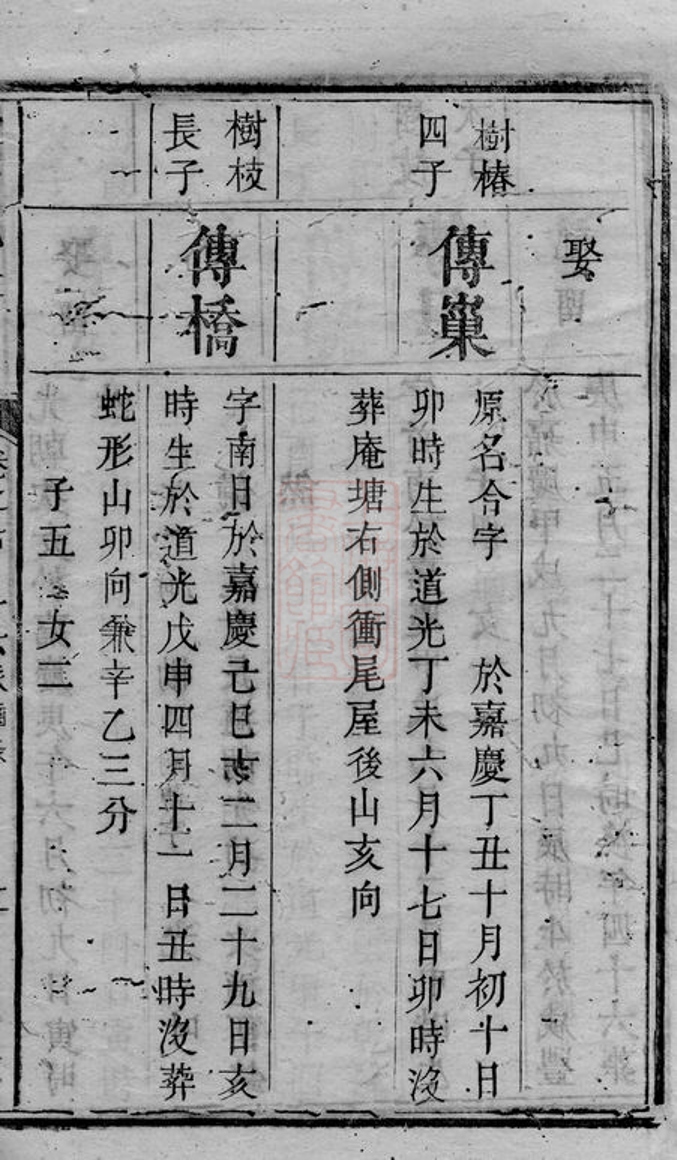 娶
樹椿
四子
傳巢
原名合字 於嘉慶丁丑十月初十日
卯時生於道光丁未六月十七日卯時沒
葬庵塘右側衝尾屋後山亥向
樹枝
長子
傳橋
字南日於嘉慶己巳十二月二十九日亥
時生於道光戊申四月十一日丑時沒葬
蛇形山卯向兼辛乙三分
子五 女二